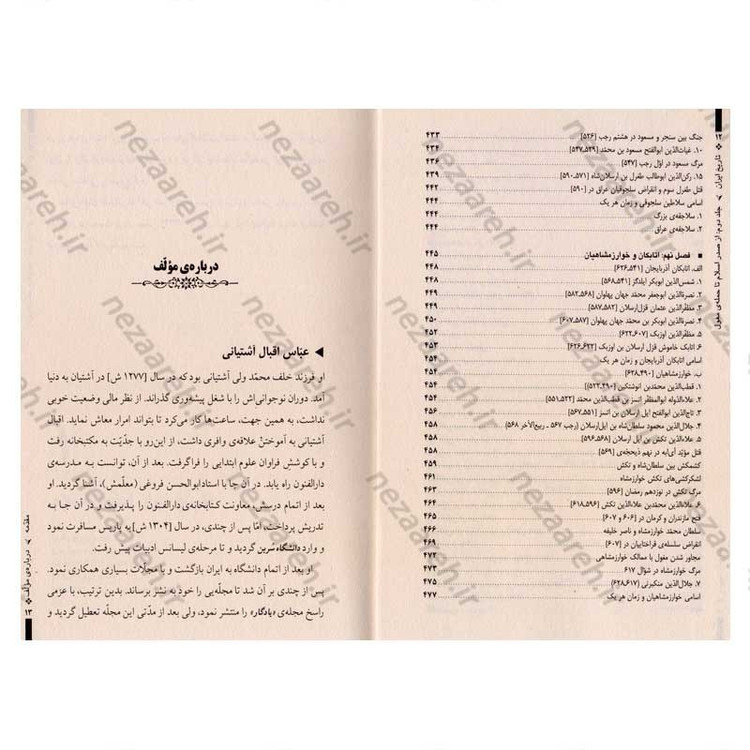 ۱۲ ❖ تاریخ ایران ◄ جلد دوم: از صدر اسلام تا حمله‌ی مغول
جنگ بین سنجر و مسعود در هشتم رجب [۵۲۶] ۴۳۳
۱۰. غیاث‌الدین ابوالفتح مسعود بن محمّد [۵۴۷ـ۵۲۹] ۴۳۴
مرگ مسعود در اوّل رجب [۵۴۷] ۴۳۶
۱۵. رکن‌الدین ابوطالب طغرل بن ارسلان‌شاه [۵۹۰ـ۵۷۱] ۴۳۹
قتل طغرل سوم و انقراض سلجوقیان عراق در [۵۹۰] ۴۴۲
اسامی سلاطین سلجوقی و زمان هر یک ۴۴۴
۱. سلاجقه‌ی بزرگ ۴۴۴
۲. سلاجقه‌ی عراق ۴۴۴
■ فصل نهم: اتابکان و خوارزمشاهیان ۴۴۵
الف. اتابکان آذربایجان [۶۲۶ـ۵۴۱]
۱. شمس‌الدین ابوبکر ایلدگز [۵۶۸ـ۵۴۱] ۴۴۸
۲. نصرةالدین ابوجعفر محمّد جهان پهلوان [۵۸۲ـ۵۶۸] ۴۴۹
۳. مظفّرالدین عثمان قزل‌ارسلان [۵۸۷ـ۵۸۲] ۴۴۹
۴. نصرةالدین ابوبکر بن محمّد جهان پهلوان [۶۰۷ـ۵۸۷] ۴۵۰
۵. مظفّرالدین اوزبک [۶۲۲ـ۶۰۷] ۴۵۲
۶. اتابک خاموش قزل ارسلان بن اوزبک [۶۲۶ـ۶۲۲] ۴۵۳
اسامی اتابکان آذربایجان و زمان هر یک ۴۵۴
ب. خوارزمشاهیان [۶۲۸ـ۴۹۰] ۴۵۴
۱. قطب‌الدین محمّدبن انوشتکین [۵۲۲ـ۴۹۰] ۴۵۴
۲. علاءالدوله ابوالمظفّر اتسز بن قطب‌الدین محمّد [۵۵۱ـ۵۲۲] ۴۵۴
۳. تاج‌الدین ابوالفتح ایل ارسلان بن اتسز [۵۶۷ـ۵۵۱] ۴۵۶
۴. جلال‌الدین محمود سلطان‌شاه بن ایل‌ارسلان (رجب ۵۶۷ ـ ربیع‌الآخر ۵۶۸) ۴۵۸
۵. علاءالدین تکش بن ایل ارسلان [۵۹۶ـ۵۶۸] ۴۵۸
قتل مؤیّد آی‌ابه در نهم ذیحجّه‌ی [۵۶۹] ۴۵۸
کشمکش بین سلطان‌شاه و تکش ۴۵۹
لشکرکشی‌های تکش خوارزمشاه ۴۶۱
مرگ تکش در نوزدهم رمضان [۵۹۶] ۴۶۳
۶. علاءالدین محمّدبن علاءالدین تکش [۶۱۸ـ۵۹۶] ۴۶۴
فتح مازندران و کرمان در [۶۰۶ و ۶۰۷] ۴۶۵
سلطان محمّد خوارزمشاه و ناصر خلیفه ۴۶۶
انقراض سلسله‌ی قراختاییان در [۶۰۷] ۴۶۹
مجاور شدن مغول با ممالک خوارزمشاهی ۴۷۲
مرگ خوارزمشاه در شوّال ۶۱۷ ۴۷۳
۷. جلال‌الدین منکبرنی [۶۲۸ـ۶۱۷] ۴۷۵
اسامی خوارزمشاهیان و زمان هر یک ۴۷۷
درباره‌ی مؤلّف
◄ عبّاس اقبال آشتیانی
او فرزند خلف محمّد ولی آشتیانی بود که در سال [۱۲۷۷ ش] در آشتیان به دنیا
آمد. دوران نوجوانی‌اش را با شغل پیشه‌وری گذراند. از نظر مالی وضعیت خوبی
نداشت، به همین جهت، ساعت‌ها کار می‌کرد تا بتواند امرار معاش نماید. اقبال
آشتیانی به آموختن علاقه‌ی وافری داشت، از این‌رو با جدّیت به مکتبخانه رفت
و با کوشش فراوان علوم ابتدایی را فراگرفت. بعد از آن، توانست به مدرسه‌ی
دارالفنون راه یابد. در آن جا با استادابوالحسن فروغی (معلّمش)، آشنا گردید. او
بعد از اتمام درسش، معاونت کتابخانه‌ی دارالفنون را پذیرفت و در آن جا به
تدریش پرداخت، امّا پس از چندی، در سال [۱۳۰۴ ش] به پاریس مسافرت نمود
و وارد دانشگاه سربن گردید و تا مرحله‌ی لیسانس ادبیات پیش رفت.
او بعد از اتمام دانشگاه به ایران بازگشت و با مجلّات بسیاری همکاری نمود.
پس از چندی بر آن شد تا مجلّه‌یی را خود به نشر برساند. بدین ترتیب، با عزمی
راسخ مجله‌ی «یادگار» را منتشر نمود، ولی بعد از مدّتی این مجله تعطیل گردید و
مقدمه ◄ درباره‌ی مؤلّف ❖ ۱۳
nezaareh.ir
nezaareh.ir
nezaareh.ir
nezaareh.ir
nezaareh.ir
nezaareh.ir